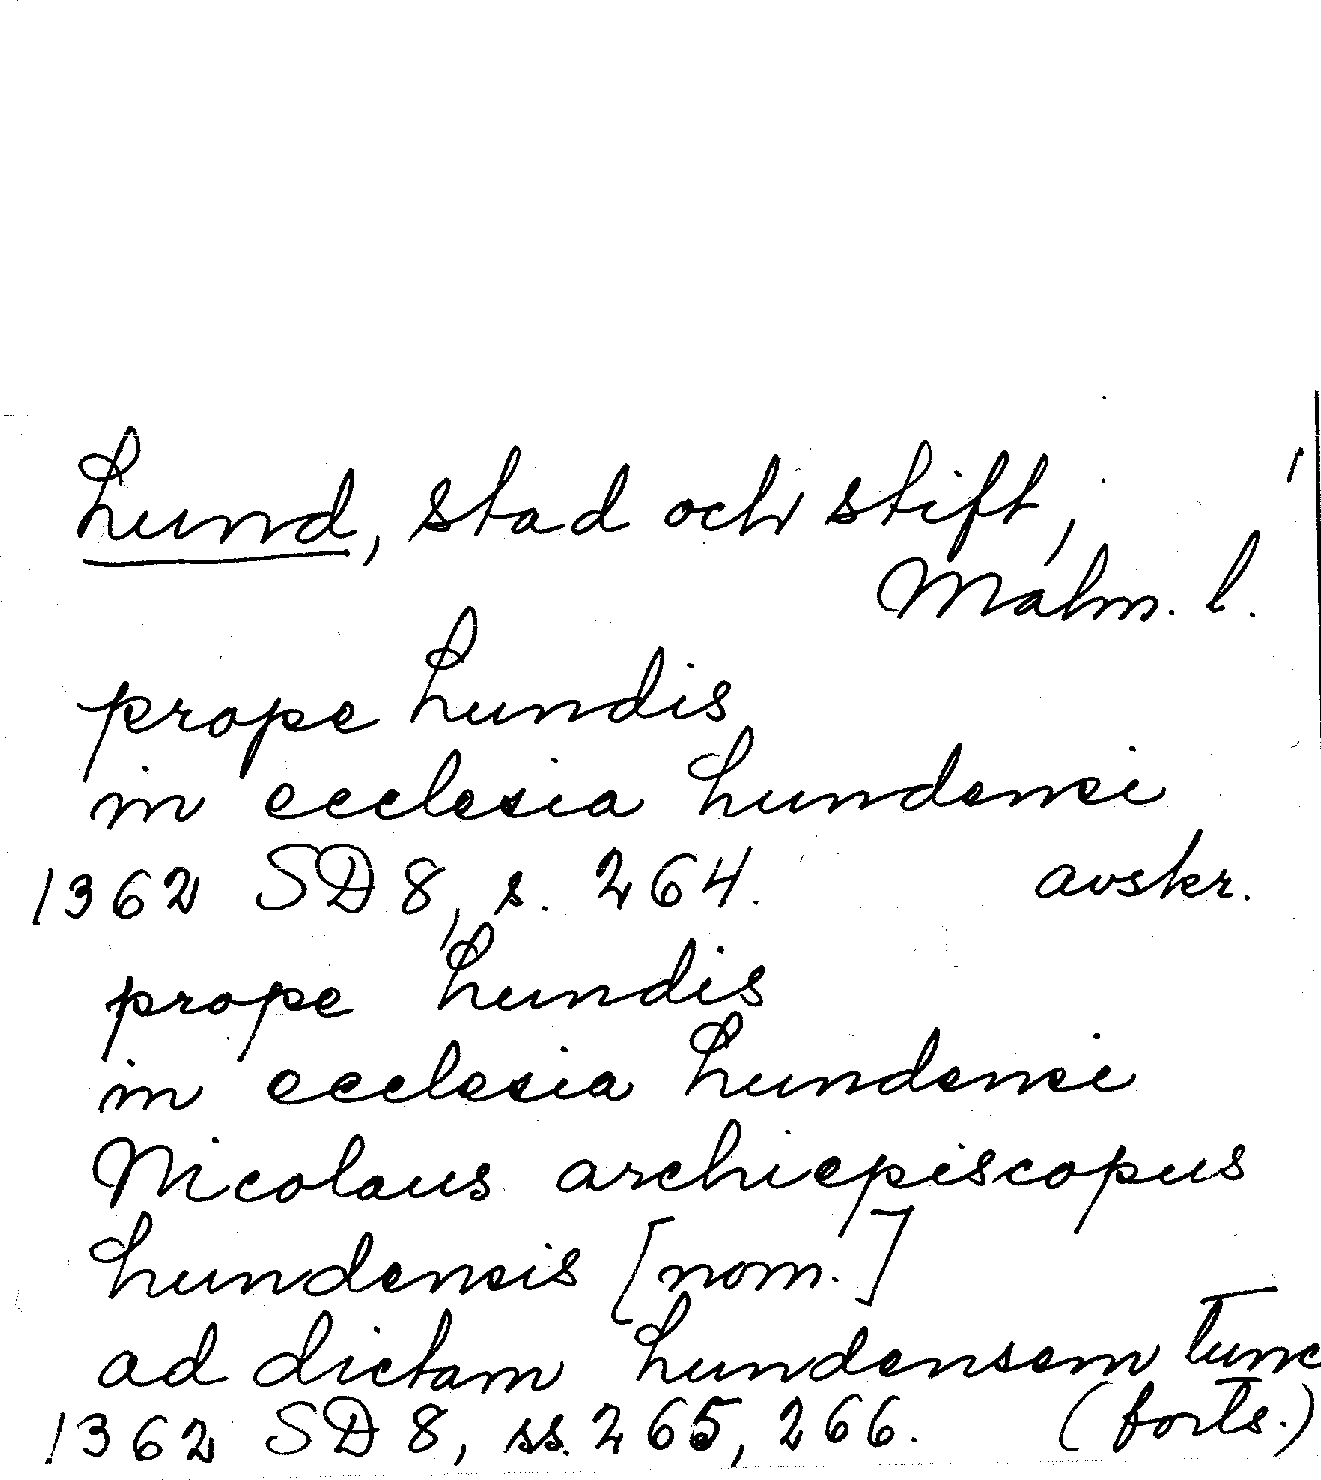 Lund, stad och stift,
Malm. l.
prope Lundis
in ecclesia Lundensi
1362 SD 8, s. 264. avskr.
prope Lundis
in ecclesia Lundensi
Nicolaus archiepiscopus
Lundensis [nom.]
ad dictam Lundensem tunc
1362 SD 8, ss. 265, 266. (forts.)